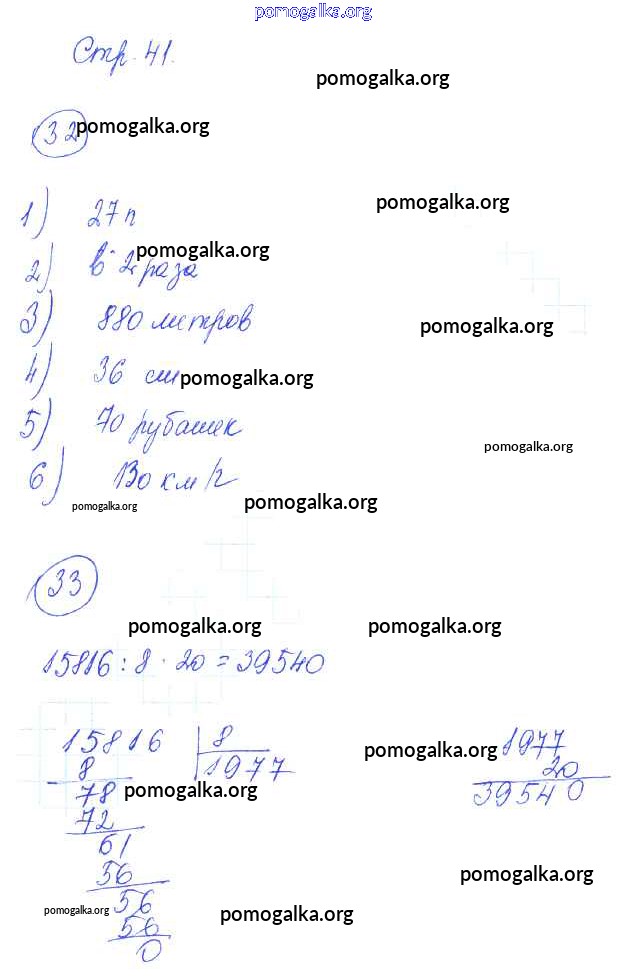 pomogalka.org
Стр. 41.
pomogalka.org
32 pomogalka.org
1) 27 п
pomogalka.org
2) в 2 раза
pomogalka.org
3) 880 литров
pomogalka.org
4) 36 см
pomogalka.org
5) 70 рубашек
pomogalka.org
6) 130 км/ч
pomogalka.org
pomogalka.org
33
pomogalka.org pomogalka.org
15816 : 8 · 20 = 39540
15816 | 8
- 8 | 1977
78
72
61
56
56
56
0
pomogalka.org
pomogalka.org
1977
20
39540
pomogalka.org
pomogalka.org
pomogalka.org